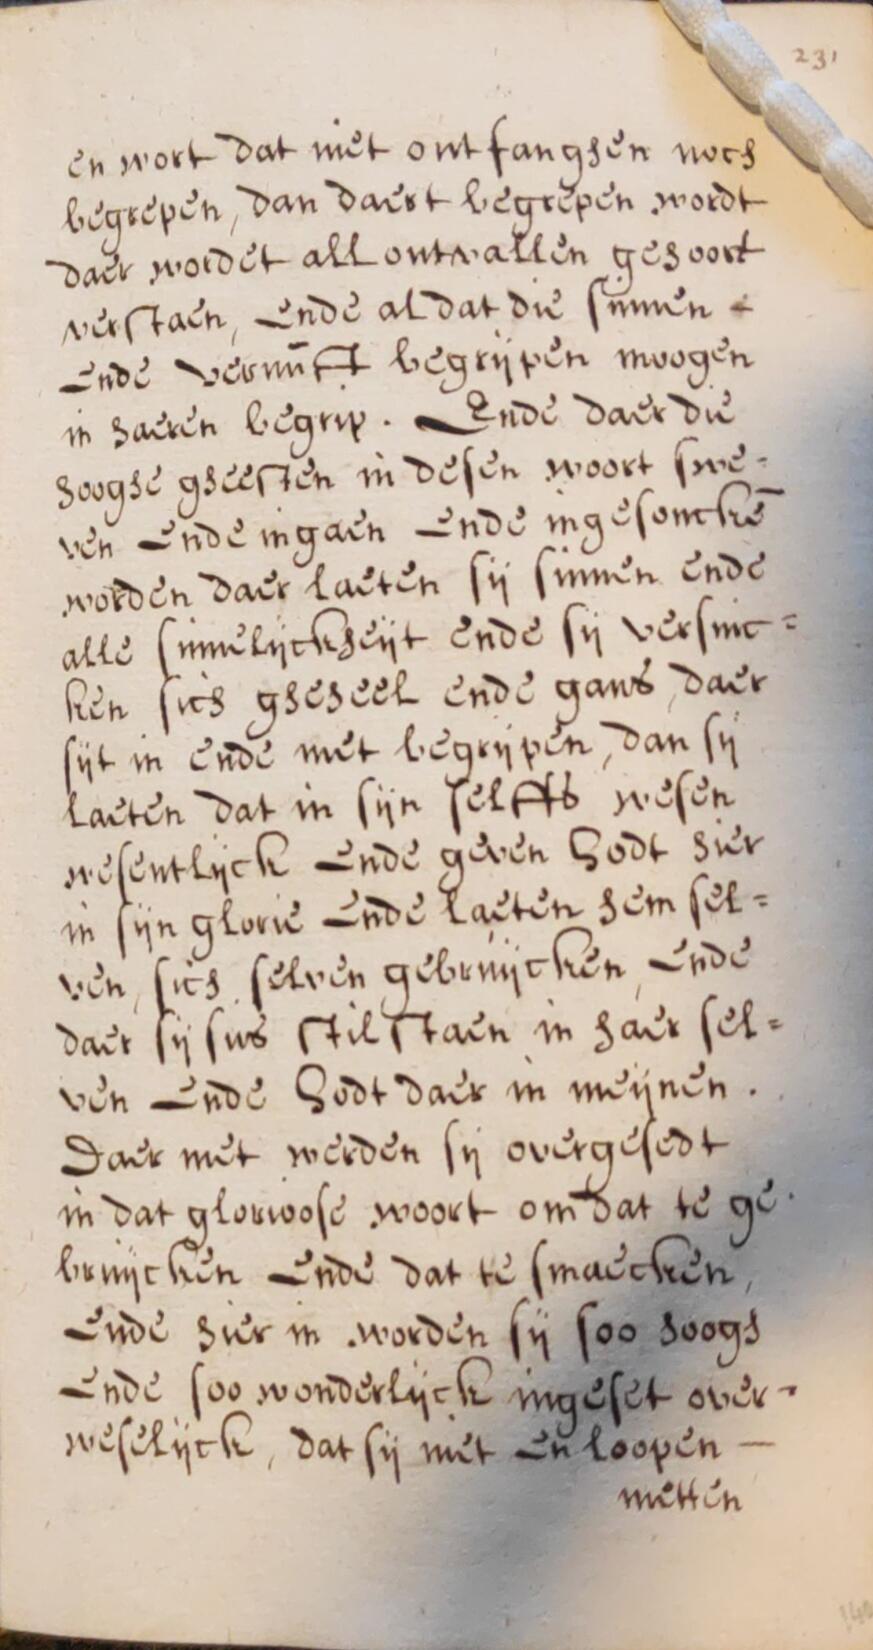 231
en wort dat niet ontfanghen noch
begrepen, dan daert begrepen wordt
daer wordet all ontvallen gehoort
verstaen, Ende al dat die sinnen
Ende vernūfft begrijpen moogen
in haeren begrip. Ende daer die
hooghe gheesten in desen woort swe=
ven Ende ingaen Ende ingesonckē
worden daer laeten sij sinnen ende
alle sinnelijckheijt ende sij versinc=
ken sich gheheel ende gans, daer
sijt in ende met begrijpen, dan sij
laeten dat in sijn selffs wesen
wesentlijck Ende geven Godt hier
in sijn glorie Ende laeten hem sel=
ven, sich selven gebruijcken, Ende
daer sij sus stil staen in haer sel=
ven Ende Godt daer in meijnen.
Daer met werden sij overgesedt
in dat glorioose woort om dat te ge
bruijcken Ende dat te smaecken,
Ende hier in worden sij soo hoogh
Ende soo wonderlijck ingeset over-
weselijck, dat sij niet en loopen —
metten